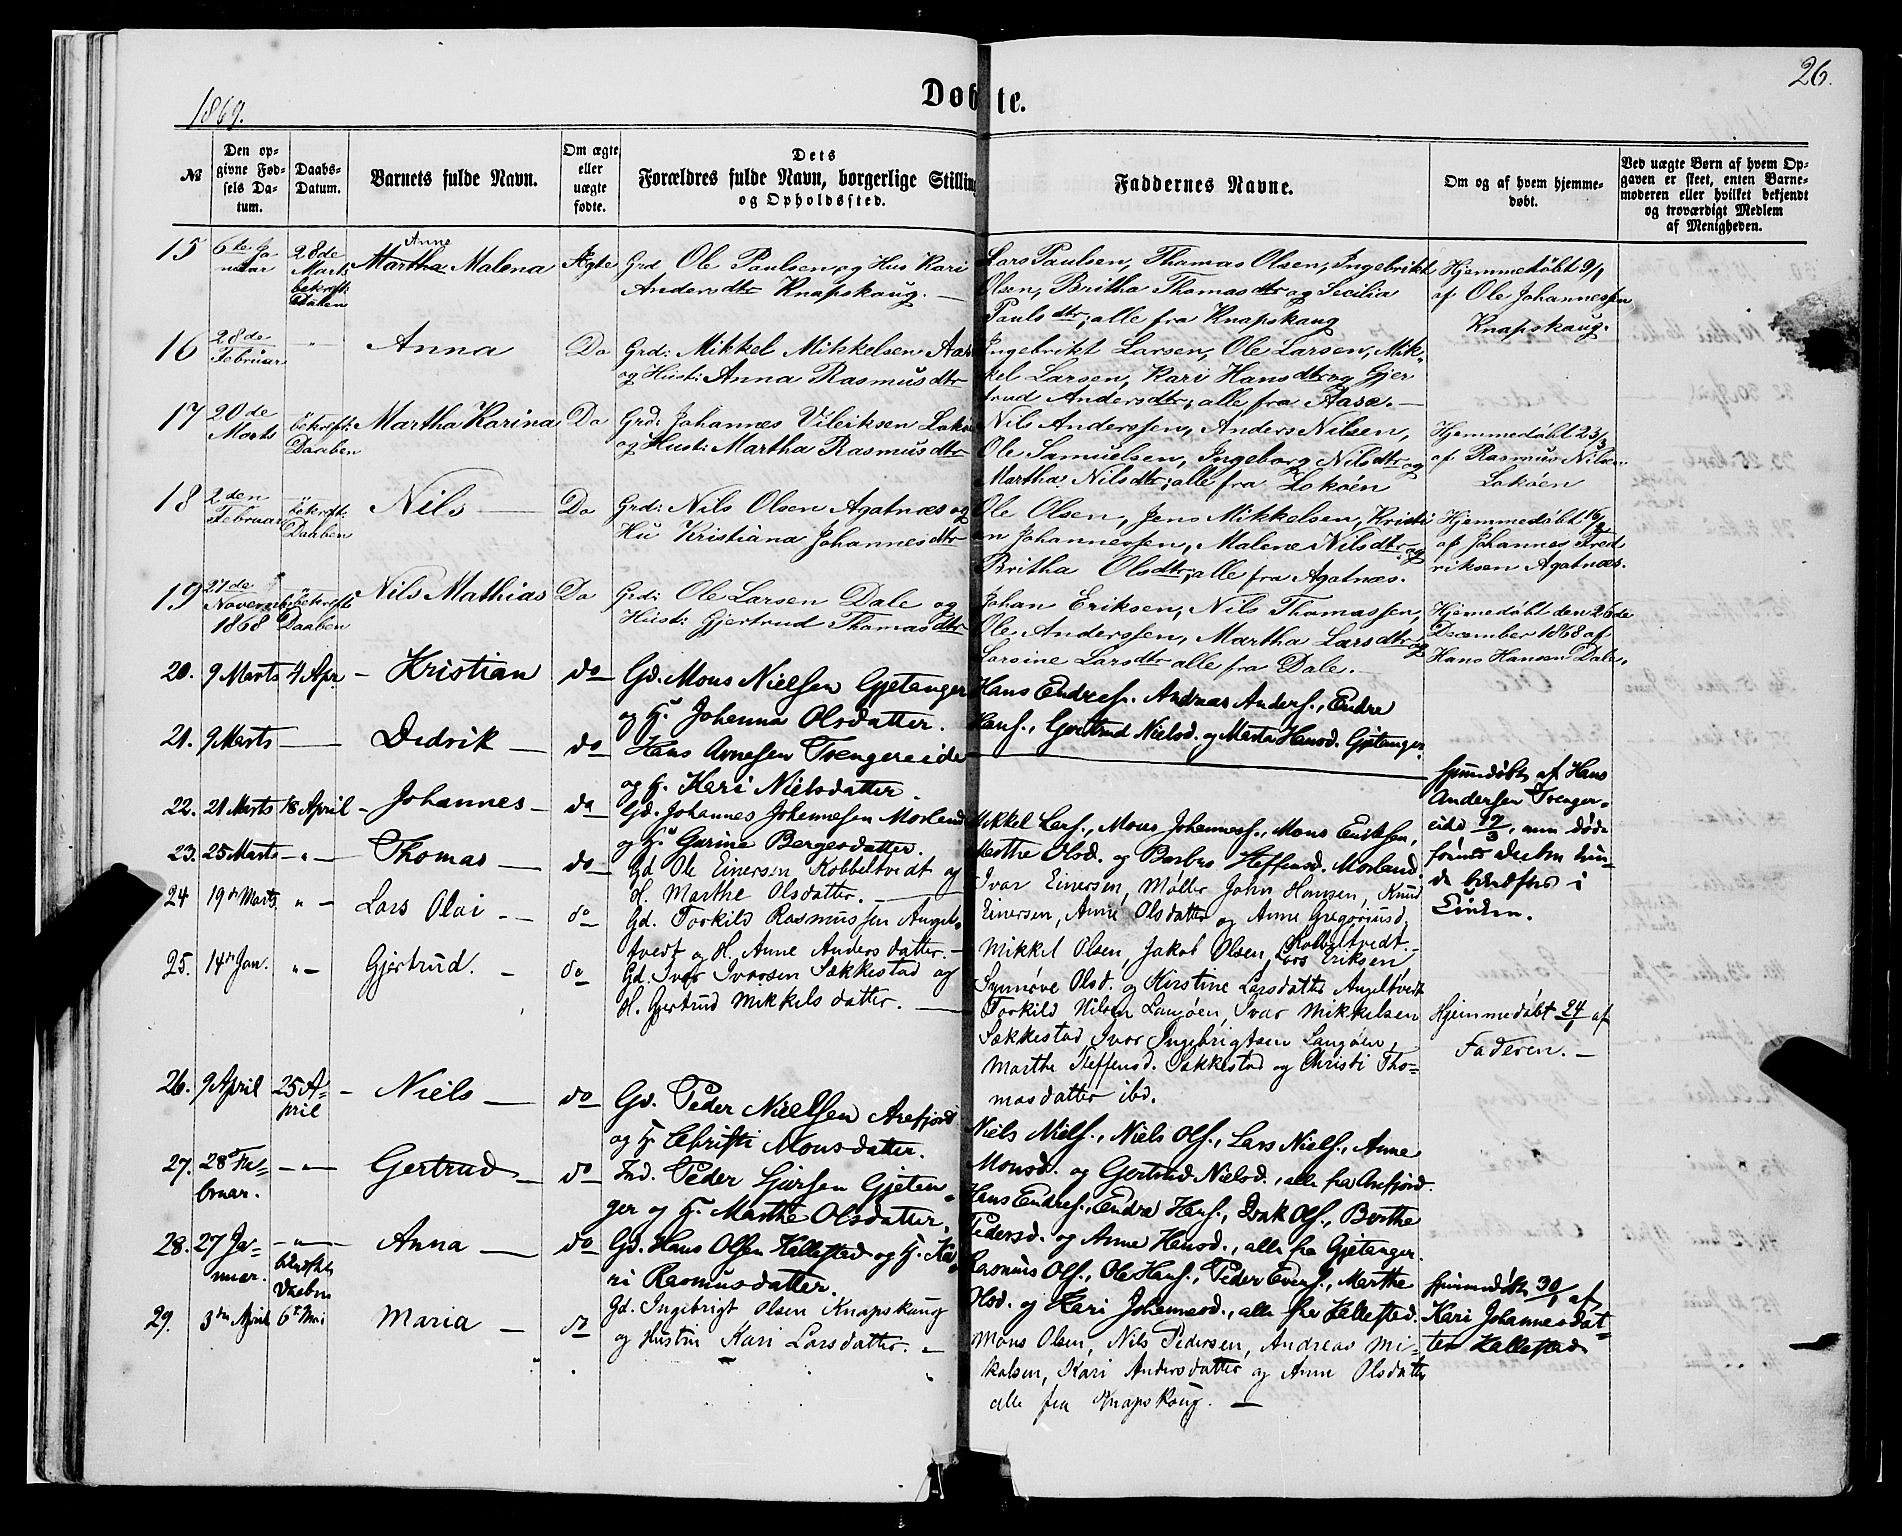 26.
Døbte.
1869.
№
Den op-
givne Fød-
sels Da-
tum.
Daabs-
Datum.
Barnets fulde Navn.
Om ægte
eller
uægte
fødte.
Dets
Forældres fulde Navn, borgerlige Stilling
og Opholdssted.
Faddernes Navne.
Om og af hvem hjemme-
døbt.
Ved uægte Børn af hvem Op-
gaven er skeet, enten Barne-
moderen eller hvilket bekjendt
og troværdigt Medlem
af Menigheden.
15 6te Ja- 28de Anne
nuar Marts Martha Malena Ægte Grd Ole Paulsen og Hus Kari
bekræft: Andersdtr Knapskaug. —
Daaben
Lars Paulsen, Thomas Olsen, Ingebrikt
Olsen, Britha Thomasdtr og Secilia
Paulsdtr; alle fra Knapskaug
Hjemmedøbt 9/1
af Ole Johannessen
Knapskaug.
16 28de Februar " Anna Do Grd: Mikkel Mikkelsen Aase
og Hust: Anna Rasmusdtr
Ingebrikt Larsen, Ole Larsen, Mik-
kel Larsen, Kari Hansdtr og Gjer
trud Andersdtr; alle fra Aase. —
17 20de Marts bekræft: Daaben Martha Karina Do Grd: Johannes Vileriksen Lokøen
og Hust: Martha Rasmusdtr
Nils Anderssen, Anders Nilsen,
Ole Samuelsen, Ingeborg Nilsdtr og
Martha Nilsdtr; alle fra Lokøen
Hjemmedøbt 23/3
af Rasmus Nilsen
Lokøen
18 2den Februar bekræft: Daaben Nils — Do Grd: Nils Olsen Agatnæs og
Hu Kristiana Johannesdtr
Ole Olsen, Jens Mikkelsen, Kristi
an Johannessen, Malene Nilsdtr og
Britha Olsdtr; alle fra Agatnæs.
Hjemmedøbt 16/2
af Johannes Fred
riksen Agatnæs.
19 27de Novemb. 1868 bekræft: Daaben Nils Mathias Do Grd: Ole Larsen Dale og
Hust: Gjertrud Thomasdtr
Johan Eriksen, Nils Thomassen,
Ole Anderssen, Martha Larsdtr og
Larsine Larsdtr alle fra Dale. —
Hjemedøbt den 26de
December 1868 af
Hans Hansen Dale.
20. 9 Marts 4 Apr — Kristian do Gd. Mons Nielsen Gjetanger
og H. Johanna Olsdatter.
Hans Endres., Andreas Anders., Endre
Hans., Gertrud Nielsd. og Marta Hansd. Gjetanger.
21. 9 Marts — Didrik — do Hans Arnesen Trengereide
og H. Kari Nielsdatter.
Hjemmedøbt af Hans
Andersen Trenger-
eide 17/3, men døde
førend Daaben kun-
de bekræftes i
Kirken.
22. 21 Marts 18 April — Johannes — do Gd. Johannes Johannesen Morland
og H. Gurine Bergesdatter.
Mikkel Lars., Mons Johanness., Mons Eriksen,
Marthe Olsd. og Barbro Steffensd. Morland.
23. 25 Marts — " — Thomas — do Gd Ole Einersen Kobbeltvedt og
H. Marthe Olsdatter. —
Ivar Einersen, Møller John Hansen, Knud
Einersen, Anne Olsdatter og Anne Gregoriusd.
Kobbeltvedt. —
24 19de Marts " — Lars Olai — do Gd. Torkild Rasmussen Angel-
tvedt og H. Anne Andersdatter. —
Mikkel Olsen, Jakob Olsen, Lars Eriksen
Synnøve Olsd. og Kirstine Larsdatter Angeltvedt
25. 14de Jan. " — Gjertrud. — do Gd. Ivar Ivarsen Sækkestad og
H. Gjertrud Mikkelsdatter. —
Torkild Nilsen Langøen, Ivar Mikkelsen
Sækkestad, Ivar Ingebrigtsen Langøen,
Marthe Steffensd. Sækkestad og Christi Tho-
masdatter ibd.
Hjemmedøbt 24/1 af
Faderen. —
26. 9 April 25 A- pril — Niels — do Gd. Peder Nielsen Arefjord
og H. Christi Monsdatter.
Niels Niels., Niels Ols., Lars Niels., Anne
Monsd. og Gertrud Nielsd., alle fra Arefjord.
27. 28de Fe- bruar. — " — Gertrud — do Ind. Peder Gjersen Gjetan-
ger og H. Marthe Olsdatter.
Hans Endres., Endre Hans., Isak Ols., Berthe
Pedersd. og Anne Hansd., alle fra Gjetanger.
28. 27 Ja- nuar. — " — bekræftet Daaben Anna — do Gd. Hans Olsen Kallestad og H. Ka-
ri Rasmusdatter.
Rasmus Ols., Ole Hans., Peder Evers., Marthe
Olsd. og Kari Johannesd., alle fra Kallestad.
Hjemmedøbt 30/1 af
Kari Johannesdat-
ter Kallestad
29. 3de April 6te Mai Maria — do Gd. Ingebrigt Olsen Knapskaug
og Hustru Kari Larsdatter. —
Mons Olsen, Nils Pedersen, Andreas Mi-
kalsen, Kari Andersdatter og Anne Olsdatter
alle fra Knapskaug. —